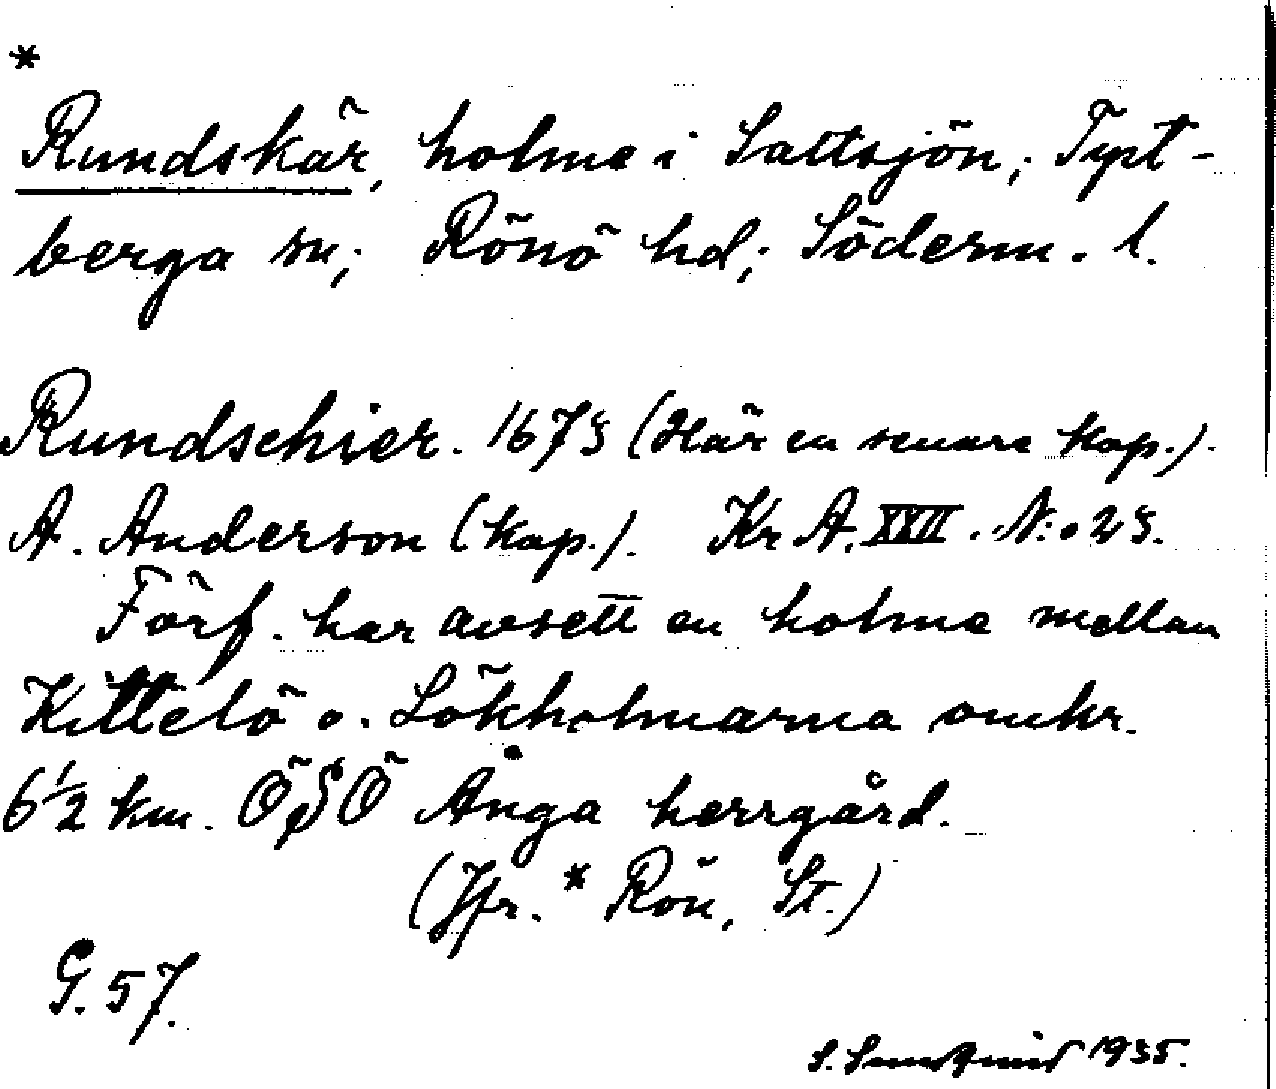 *
Rundskär, holme i Saltsjön; Tyst-
berga sn; Rönö hd; Söderm. l.
Rundschier. 1673 (Här en senare kop.).
A. Anderson (kop.). Kr A. XXII. N:o 23.
Förf. har avsett en holme mellan
Kittelö o. Lökholmarna omkr.
6 1/2 km. ÖSÖ Ånga herrgård.
(Jfr. * Rön, St.)
G. 57.
S. 1935.